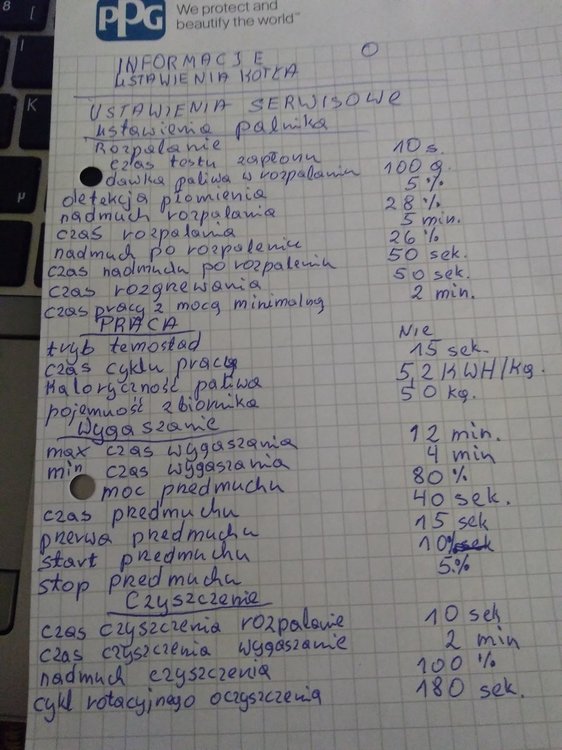 PPG
We protect and
beautify the world™
INFORMACJE
USTAWIENIA KOTŁA
USTAWIENIA SERWISOWE
ustawienia palnika
Rozpalanie
czas testu zapłonu 10 s.
dawka paliwa w rozpalaniu 100 g.
detekcja płomienia 5%
nadmuch rozpalania 28%
czas rozpalania 5 min.
nadmuch po rozpaleniu 26%
czas nadmuchu po rozpaleniu 50 sek.
czas rozgrzewania 50 sek.
czas pracy z mocą minimalną 2 min.
PRACA
tryb temostad Nie
czas cyklu pracy 15 sek.
Kaloryczność paliwa 5,2 KWH/Kg.
pojemność zbiornika 50 kg.
Wygaszanie
max czas wygaszania 12 min.
min czas wygaszania 4 min
moc przedmuchu 80%
czas przedmuchu 40 sek.
przerwa przedmuchu 15 sek
start przedmuchu 10%
stop przedmuchu 5%
Czyszczenie
czas czyszczenia rozpalanie 10 sek
czas czyszczenia wygaszanie 2 min
nadmuch czyszczenia 100%
cykl rotacyjnego oczyszczenia 180 sek.
8
K
µ